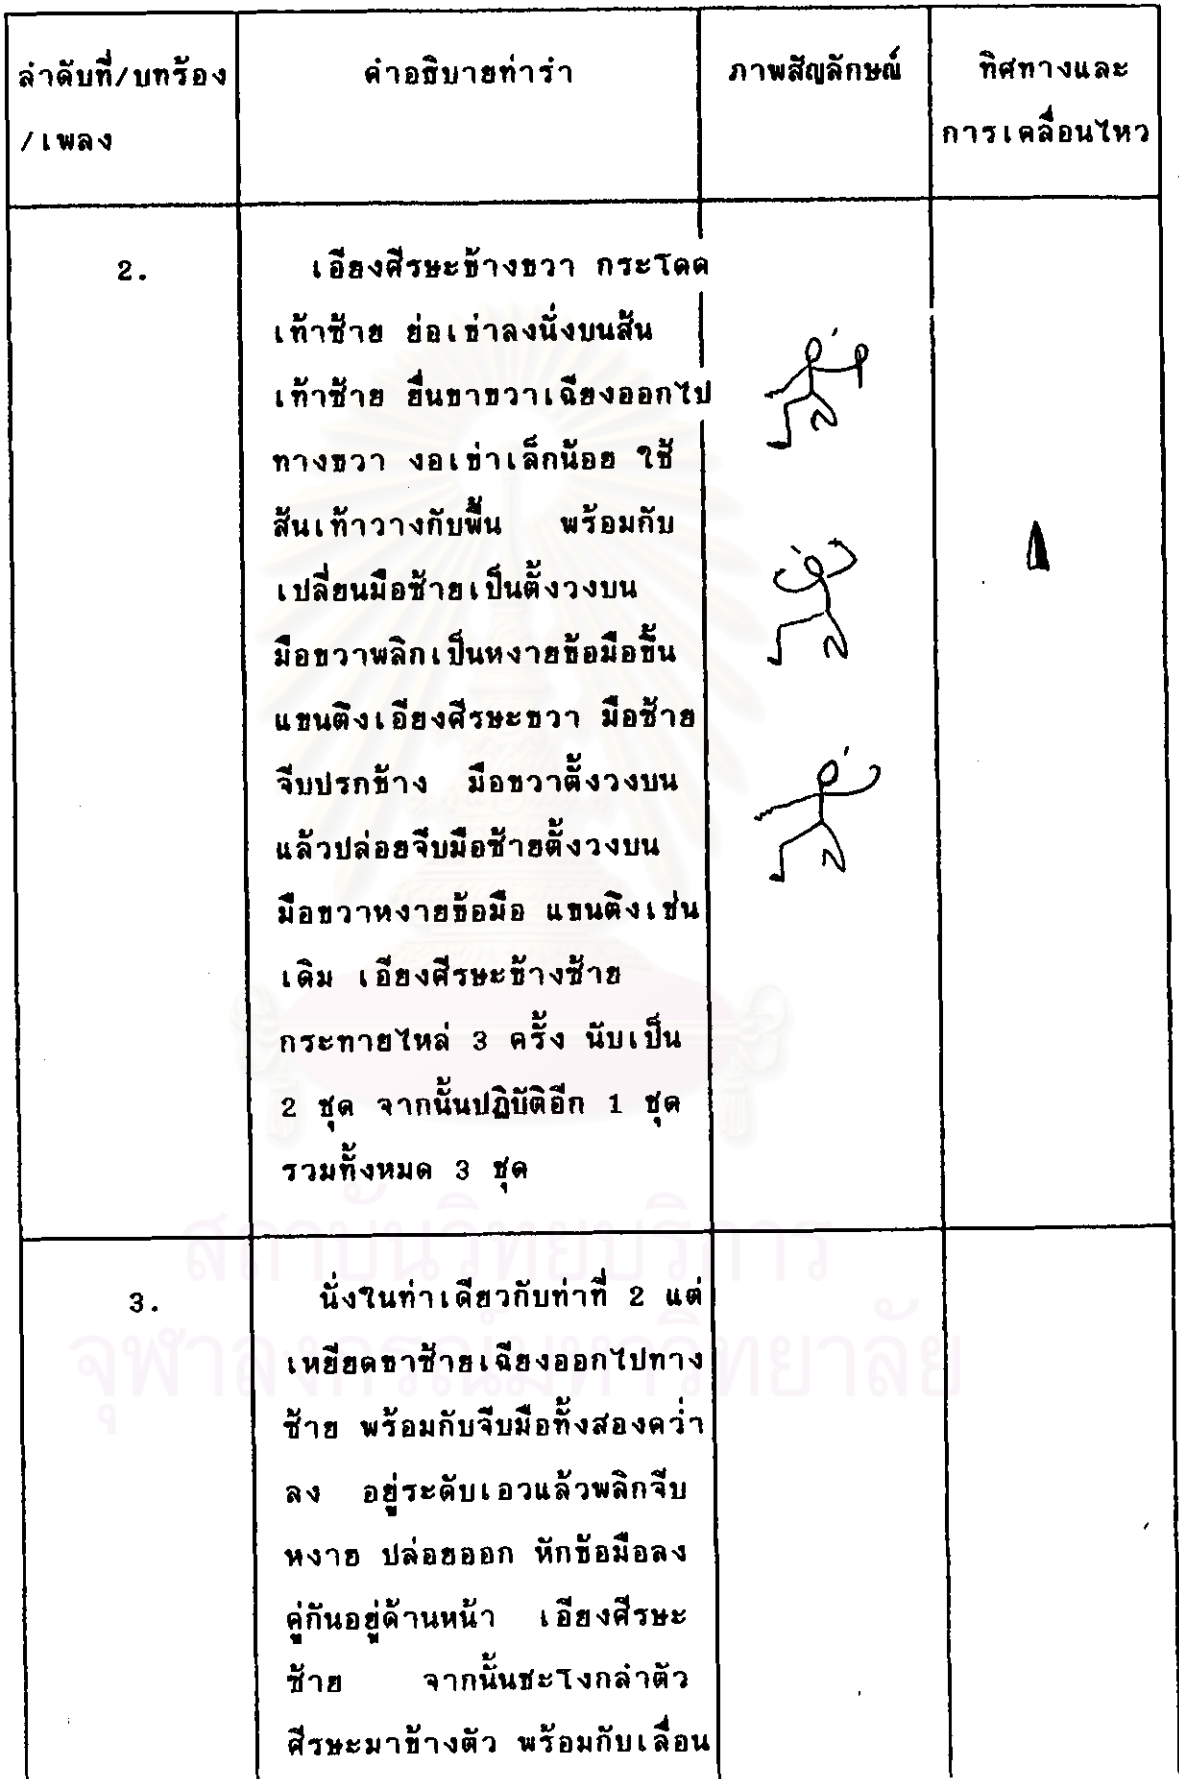 ลำดับที่/บทร้อง
/เพลง
คำอธิบายท่ารำ
ภาพสัญลักษณ์
ทิศทางและ
การเคลื่อนไหว
2.
เอียงศีรษะข้างขวา กระโดด
เท้าซ้าย ย่อเข่าลงนั่งบนส้น
เท้าซ้าย ยื่นขาขวาเฉียงออกไป
ทางขวา งอเข่าเล็กน้อย ใช้
ส้นเท้าวางกับพื้น พร้อมกับ
เปลี่ยนมือซ้ายเป็นตั้งวงบน
มือขวาพลิกเป็นหงายข้อมือขึ้น
แขนตึงเอียงศีรษะขวา มือซ้าย
จีบปรกข้าง มือขวาตั้งวงบน
แล้วปล่อยจีบมือซ้ายตั้งวงบน
มือขวาหงายข้อมือ แขนตึงเช่น
เดิม เอียงศีรษะข้างซ้าย
กระทายไหล่ 3 ครั้ง นับเป็น
2 ชุด จากนั้นปฏิบัติอีก 1 ชุด
รวมทั้งหมด 3 ชุด
3.
นั่งในท่าเดียวกับท่าที่ 2 แต่
เหยียดขาซ้ายเฉียงออกไปทาง
ซ้าย พร้อมกับจีบมือทั้งสองคว่ำ
ลง อยู่ระดับเอวแล้วพลิกจีบ
หงาย ปล่อยออก หักข้อมือลง
คู่กันอยู่ด้านหน้า เอียงศีรษะ
ซ้าย จากนั้นชะโงกลำตัว
ศีรษะมาข้างตัว พร้อมกับเลื่อน
สถาบันวิทยบริการ
จุฬาลงกรณ์มหาวิทยาลัย